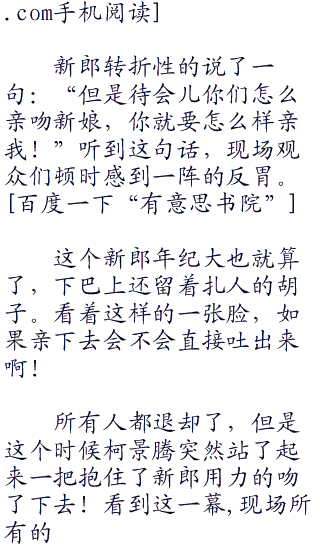 .com手机阅读]
新郎转折性的说了一
句：“但是待会儿你们怎么
亲吻新娘，你就要怎么样亲
我！”听到这句话，现场观
众们顿时感到一阵的反胃。
[百度一下“有意思书院”]
这个新郎年纪大也就算
了，下巴上还留着扎人的胡
子。看着这样的一张脸，如
果亲下去会不会直接吐出来
啊！
所有人都退却了，但是
这个时候柯景腾突然站了起
来一把抱住了新郎用力的吻
了下去！看到这一幕,现场所
有的